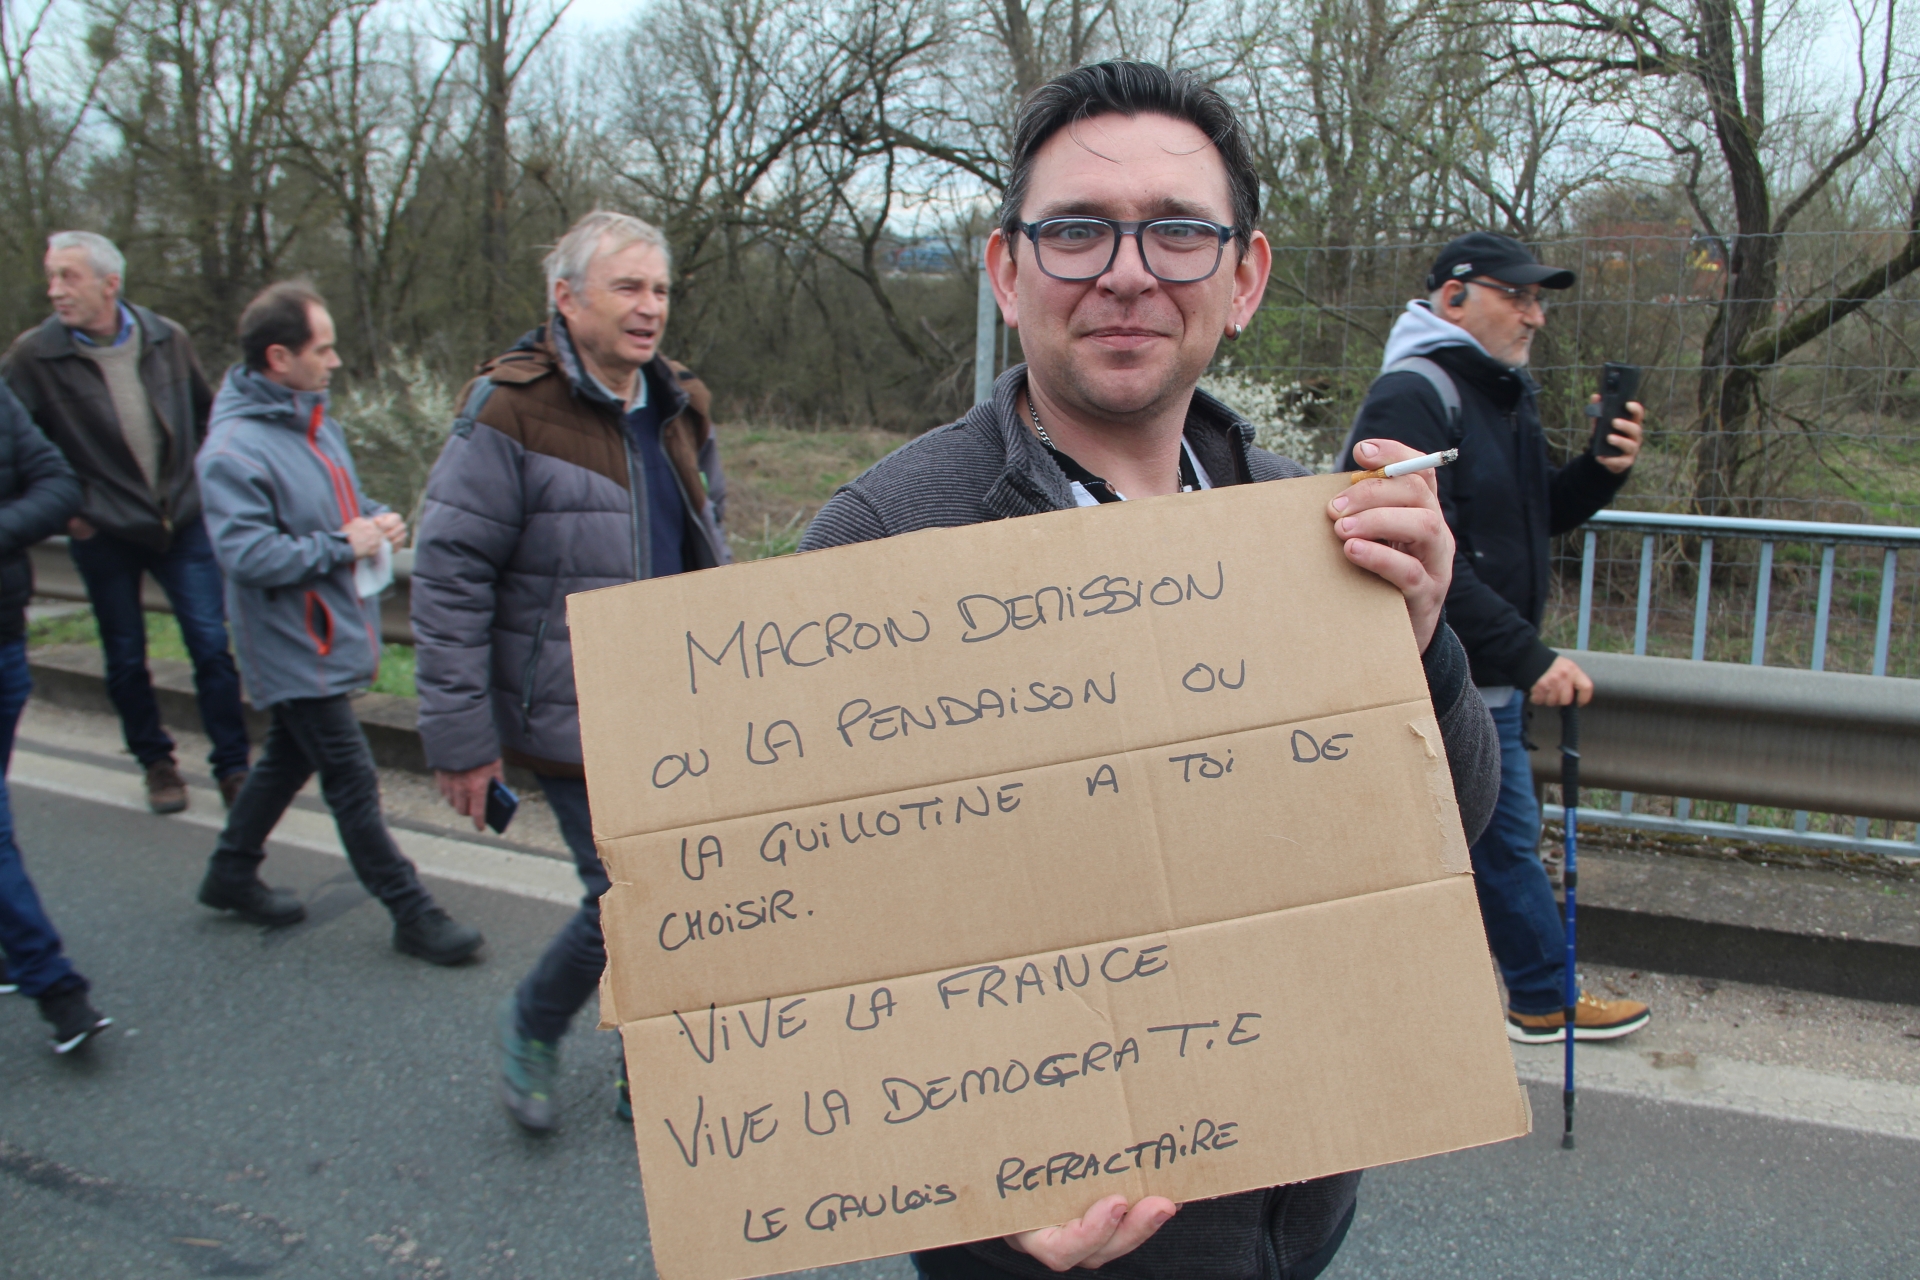 MACRON DEMISSION
OU LA PENDAISON OU
LA GUILLOTINE A TOI DE
CHOISIR.
VIVE LA FRANCE
VIVE LA DEMOCRATIE
LE GAULOIS REFRACTAIRE